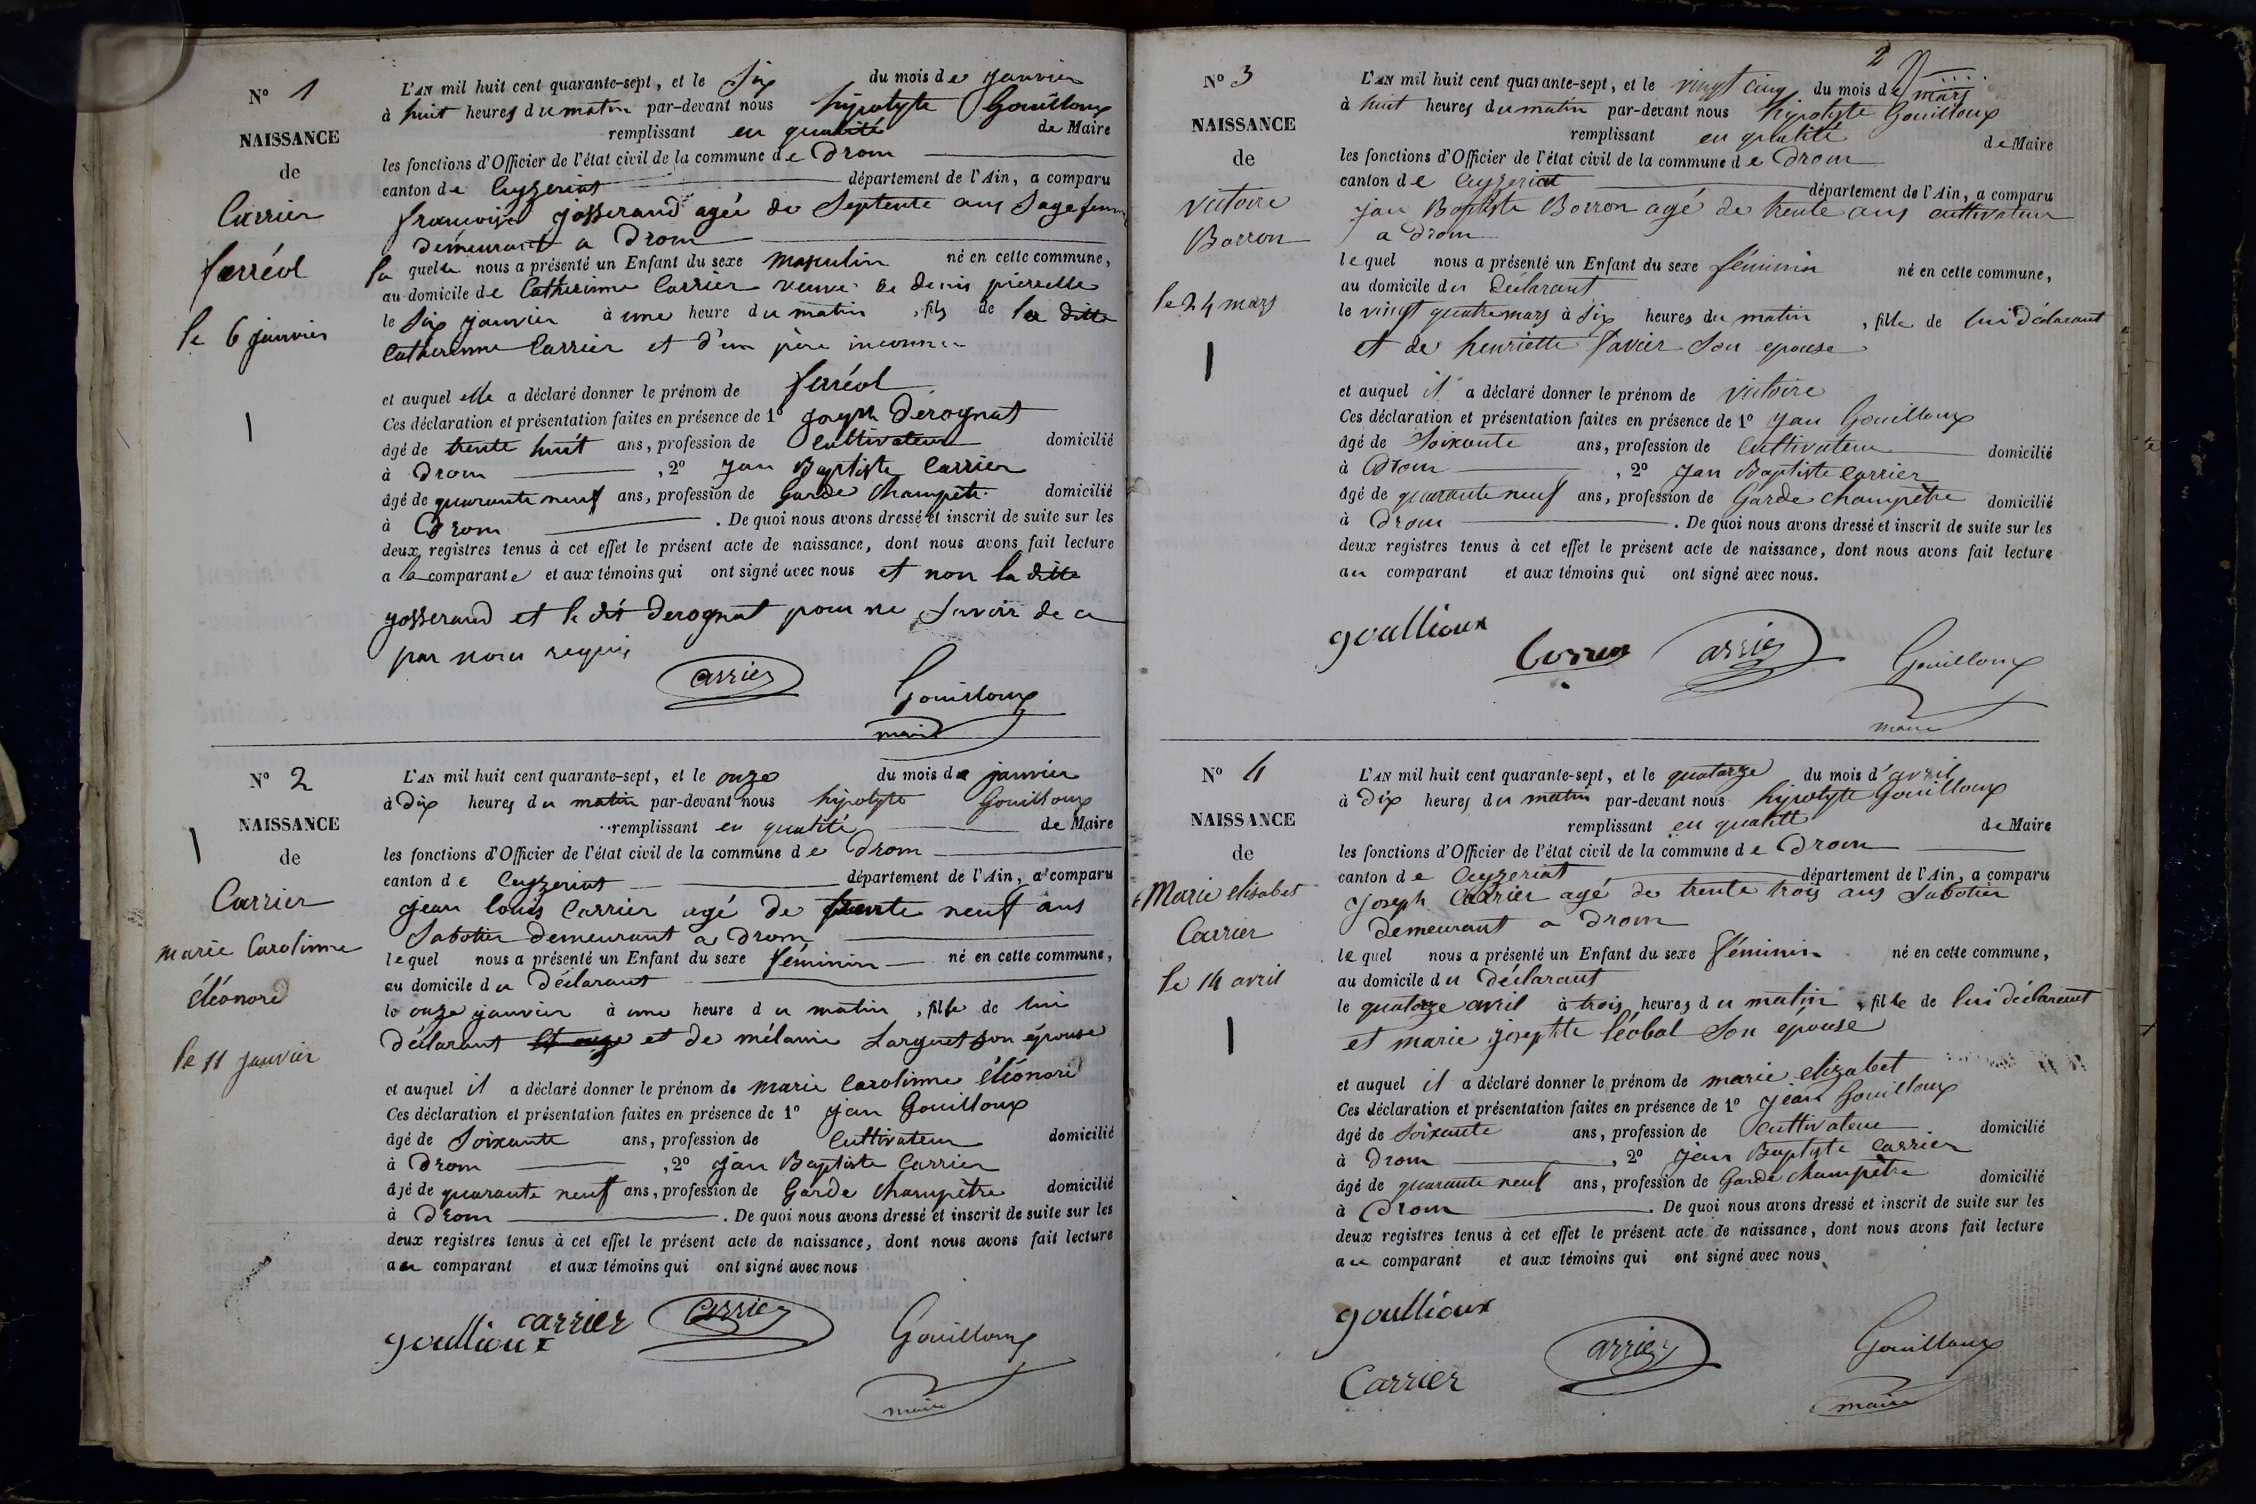 N° 1
NAISSANCE
de
Carrier
ferréol
le 6 janvier
L'AN mil huit cent quarante-sept, et le Six du mois de janvier
à huit heures du matin par-devant nous hipolyte Gouilloux
remplissant en qualité de Maire
les fonctions d'Officier de l'état civil de la commune de Drom
canton de Ceyzeriat département de l'Ain, a comparu
françoise josserand agée de Septente ans Sage femme
demeurant a Drom
la quelle nous a présenté un Enfant du sexe masculin né en cette commune,
au domicile de Catherinne Carrier veuve de denis
le Six janvier à une heure du matin, fils de la ditte
Catherinne Carrier et d'un père inconnu
et auquel elle a déclaré donner le prénom de ferréol
Ces déclaration et présentation faites en présence de 1° joseph Dérognat
âgé de trente huit ans, profession de Cultivateur domicilié
à Drom, 2° jan Baptiste Carrier
âgé de quarante neuf ans, profession de Garde Champêtre domicilié
à Drom. De quoi nous avons dressé et inscrit de suite sur les
deux registres tenus à cet effet le présent acte de naissance, dont nous avons fait lecture
a la comparante et aux témoins qui ont signé avec nous et non la ditte
josserand et le dit Derognat pour ne Savoir de ce
par nous requis
Carrier
Gouilloux
maire
N° 2
NAISSANCE
de
Carrier
marie Carolinne
éléonore
le 11 janvier
L'AN mil huit cent quarante-sept, et le onze du mois de janvier
à Dix heures du matin par-devant nous hipolyte Gouilloux
remplissant en qualité de Maire
les fonctions d'Officier de l'état civil de la commune de Drom
canton de Ceyzeriat département de l'Ain, a comparu
jean louis Carrier agé de trente neuf ans
Sabotier demeurant a Drom
lequel nous a présenté un Enfant du sexe féminin né en cette commune,
au domicile du Déclarant
le onze janvier à une heure du matin, fille de lui
déclarant et de mélanie Larguet son épouse
et auquel il a déclaré donner le prénom de marie Carolinne éléonore
Ces déclaration et présentation faites en présence de 1° jan Gouilloux
âgé de Soixante ans, profession de Cultivateur domicilié
à Drom, 2° jan Baptiste Carrier
âgé de quarante neuf ans, profession de Garde Champêtre domicilié
à Drom. De quoi nous avons dressé et inscrit de suite sur les
deux registres tenus à cet effet le présent acte de naissance, dont nous avons fait lecture
au comparant et aux témoins qui ont signé avec nous
goullioux carrier Carrier Gouilloux
maire
2
N° 3
NAISSANCE
de
Victoire
Borron
le 24 mars
L'AN mil huit cent quarante-sept, et le vingt cinq du mois de mars
à huit heures du matin par-devant nous hipolyte Gouilloux
remplissant en qualité de Maire
les fonctions d'Officier de l'état civil de la commune de Drom
canton de Ceyzeriat département de l'Ain, a comparu
jan Baptiste Borron agé de trente ans cultivateur
a Drom
lequel nous a présenté un Enfant du sexe féminin né en cette commune,
au domicile du Déclarant
le vingt quatre mars à Six heures du matin, fille de lui Déclarant
et de henriette favier Son epouse
et auquel il a déclaré donner le prénom de Victoire
Ces déclaration et présentation faites en présence de 1° jan Gouilloux
âgé de Soixante ans, profession de Cultivateur domicilié
à Drom, 2° jan Baptiste Carrier
âgé de quarante neuf ans, profession de Garde Champêtre domicilié
à Drom. De quoi nous avons dressé et inscrit de suite sur les
deux registres tenus à cet effet le présent acte de naissance, dont nous avons fait lecture
au comparant et aux témoins qui ont signé avec nous.
goullioux Carrier Gouilloux
maire
N° 4
NAISSANCE
de
Marie elisabet
Carrier
le 14 avril
L'AN mil huit cent quarante-sept, et le quatorze du mois d'avril
à Dix heures du matin par-devant nous hipolyte Gouilloux
remplissant en qualité de Maire
les fonctions d'Officier de l'état civil de la commune de Drom
canton de Ceyzeriat département de l'Ain, a comparu
joseph Carrier agé de trente trois ans Sabotier
demeurant a Drom
lequel nous a présenté un Enfant du sexe féminin né en cette commune,
au domicile du Déclarant
le quatorze avril à trois heures du matin, fille de lui déclarant
et marie josephte léobal Son épouse
et auquel il a déclaré donner le prénom de marie elizabet
Ces déclaration et présentation faites en présence de 1° jean Gouilloux
âgé de Soixante ans, profession de Cultivateur domicilié
à Drom, 2° jean Baptiste Carrier
âgé de quarante neuf ans, profession de Garde champêtre domicilié
à Drom. De quoi nous avons dressé et inscrit de suite sur les
deux registres tenus à cet effet le présent acte de naissance, dont nous avons fait lecture
au comparant et aux témoins qui ont signé avec nous
goullioux
Carrier Carrier Gouilloux
maire